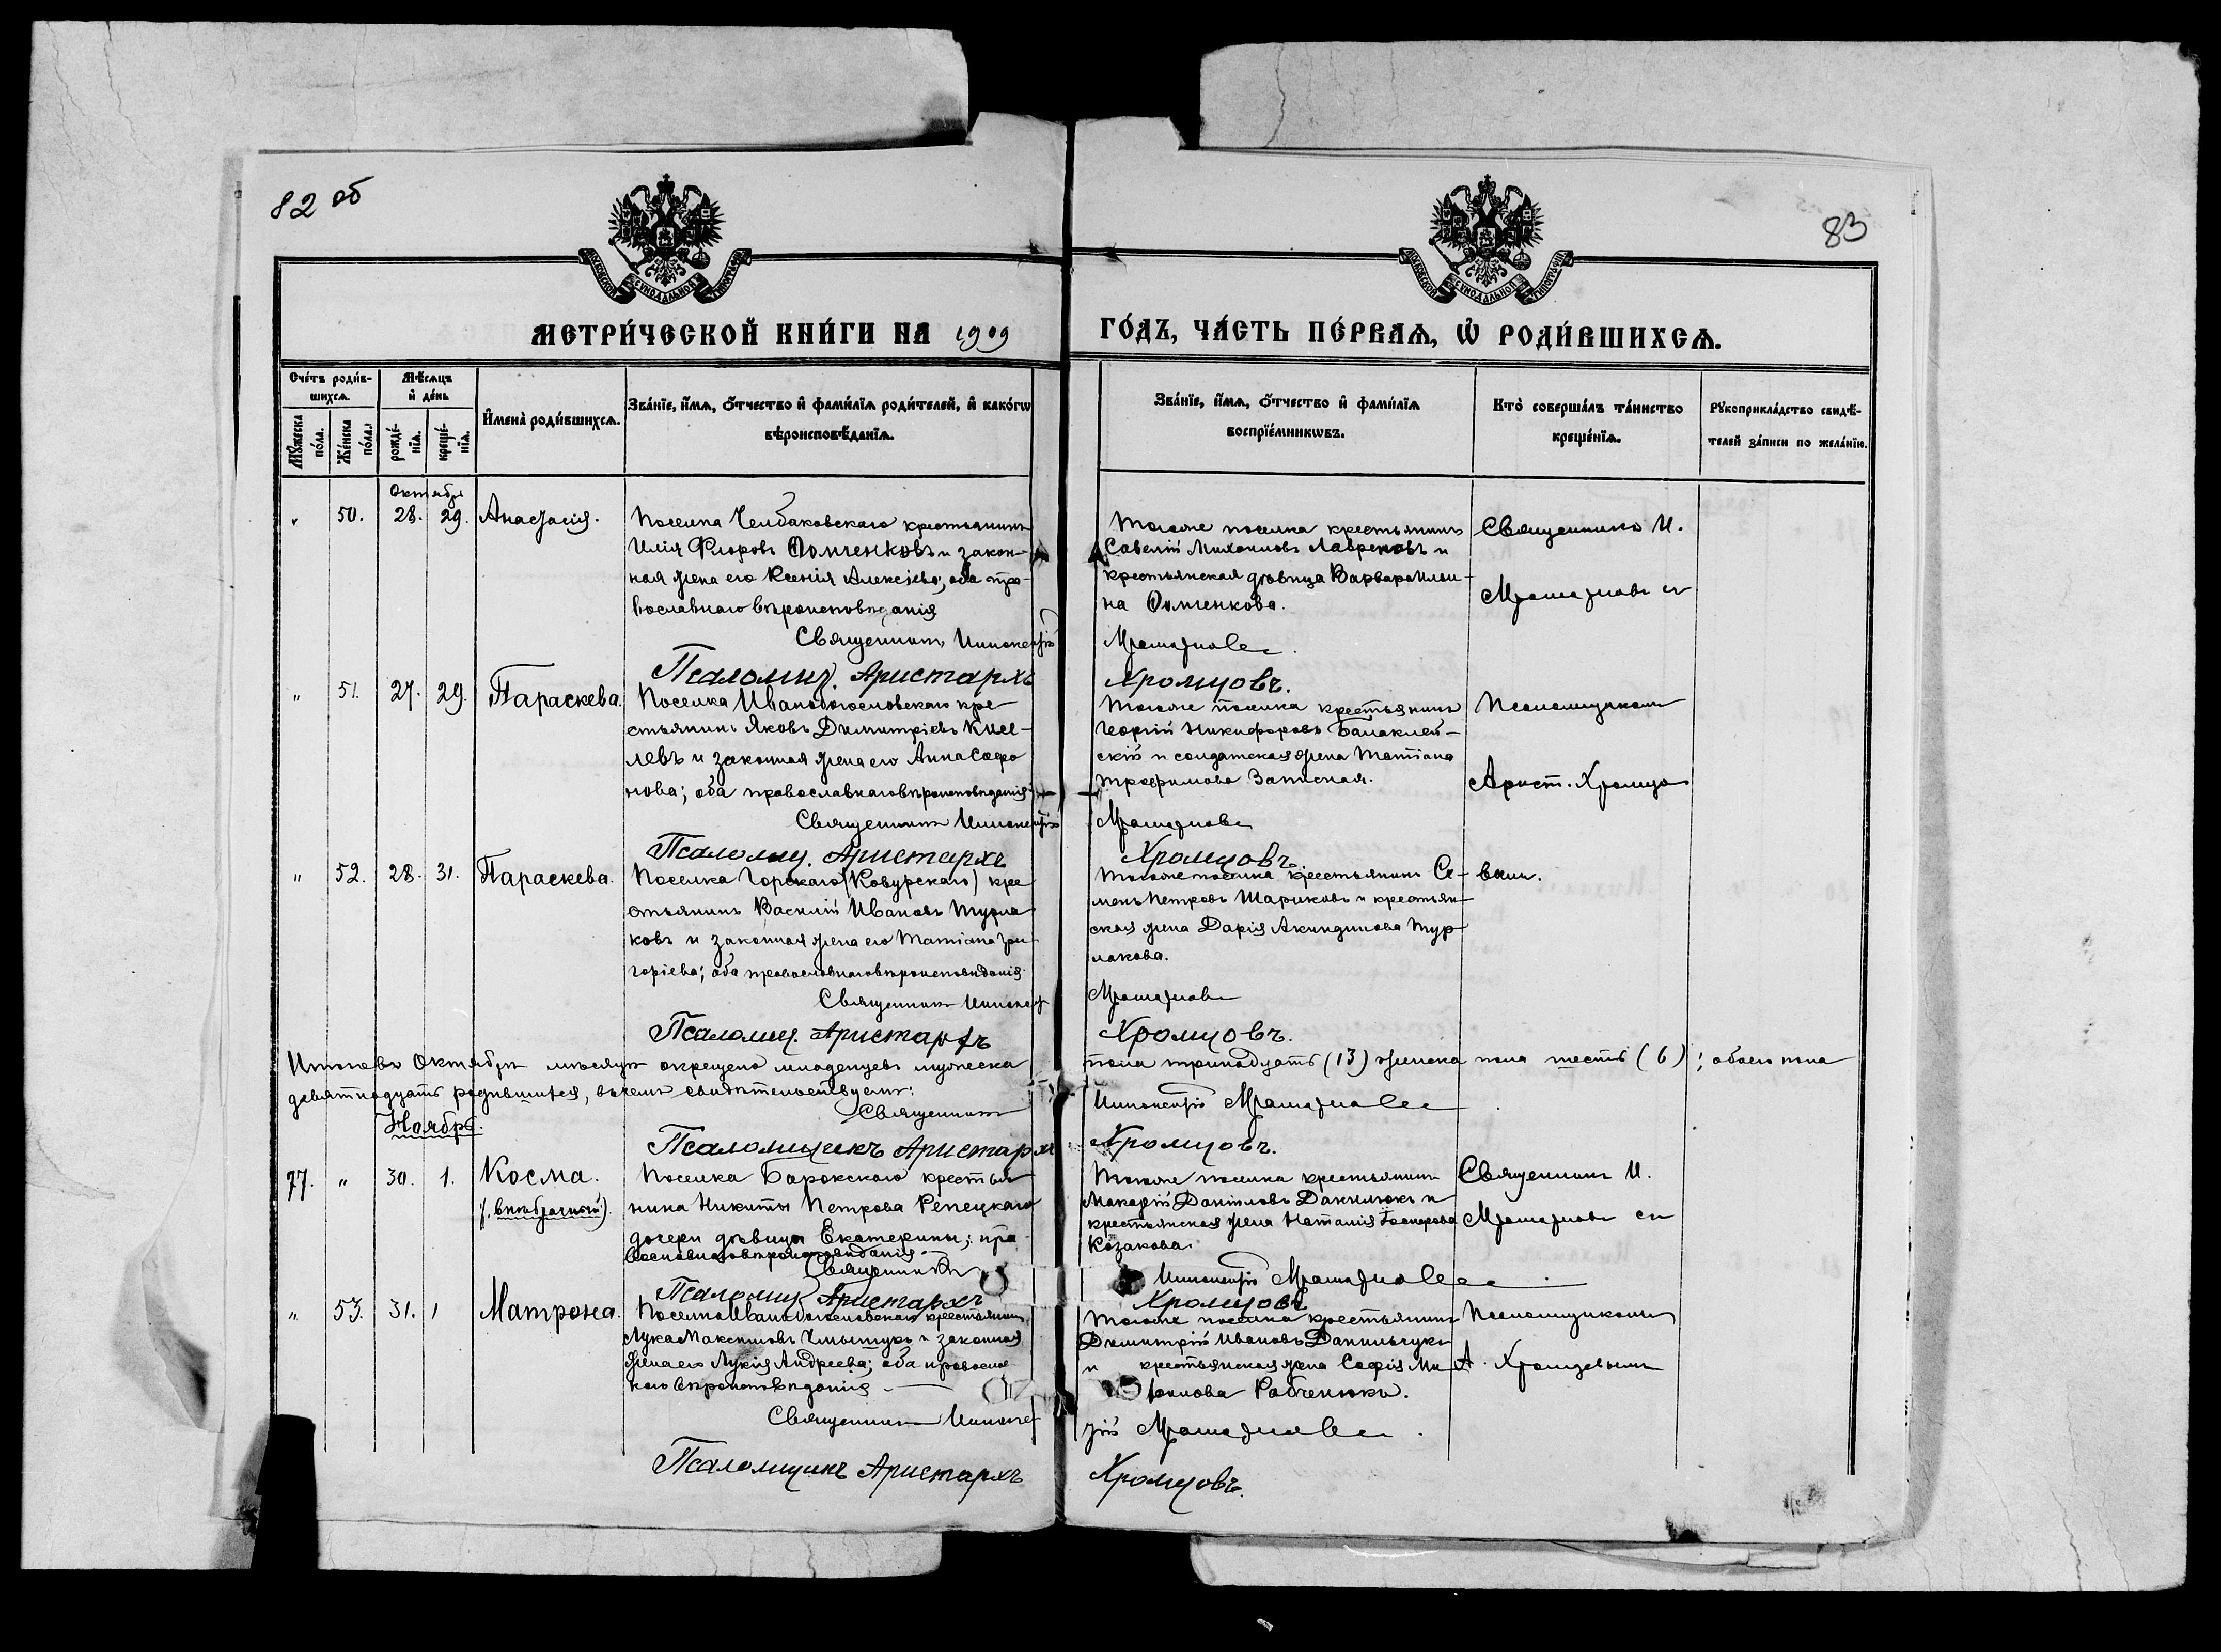 82 об
83
МОСКОВСКОЙ СѴНОДАЛЬНОЙ ТИПОГРАФІИ
МОСКОВСКОЙ СѴНОДАЛЬНОЙ ТИПОГРАФІИ
МЕТРИ́ЧЕСКОЙ КНИ́ГИ НА 1909
ГО́ДЪ, ЧА́СТЬ ПЕ́РВАѦ, Ѡ҆ РОДИ́ВШИХСѦ.
Сче́тъ роди́в-
шихсѧ.
Мѣ́сѧцъ
и҆ де́нь
Мꙋ́жеска по́ла.
Же́нска по́ла.
рожде́-
нїѧ.
креще́-
нїѧ.
И҆мена̀ роди́вшихсѧ.
Зва́нїе, и҆́мѧ, ѻ҆́тчество и҆ фами́лїѧ роди́телей, и҆ како́гѡ
вѣроисповѣ́данїѧ.
Зва́нїе, и҆́мѧ, ѻ҆́тчество и҆ фами́лїѧ
воспрїе́мникѡвъ.
Кто̀ соверша́лъ та́инство
креще́нїѧ.
Рꙋкоприкла́дство свидѣ́-
телей за́писи по жела́нїю.
Октября
" 50. 28. 29. Анастасія.
Поселка Челбаковскаго крестьянинъ
Илія Флоровъ Фомченковъ и закон-
ная жена его Ксенія Алексіева; оба пра-
вославнаго вѣроисповѣданія
Священникъ Иннокентій
Псаломщ. Аристархъ
Тогоже поселка крестьянинъ
Савелій Михаиловъ Лавреновъ и
крестьянская дѣвица Варвара Ильи-
на Фомченкова.
Хромцовъ.
Священникъ И.
" 51. 27. 29. Параскева.
Поселка Иванобогословскаго кре
стьянинъ Яковъ Димитріевъ Кисе-
левъ и законная жена его Анна Сафо
нова; оба православнаго вѣроисповѣданія
Священникъ Иннокентій
Псаломщ. Аристархъ
Тогоже поселка крестьянинъ
Георгій Никифоровъ Балаклей-
скій и солдатская жена Татіана
Трофимова Запасная.
Хромцовъ.
Псаломщикомъ
Арист. Хромцо
вым.
" 52. 28. 31. Параскева.
Поселка Горскаго (Ковурскаго) кре
стьянинъ Василій Ивановъ Турла
ковъ и законная жена его Татіана Гри
горіева; оба православнаго вѣроисповѣданія
Священникъ Иннокент
Псаломщ. Аристархъ
Тогоже поселка крестьянинъ Се-
менъ Петровъ Шариковъ и крестьян-
ская жена Дарія Акиндинова Тур-
лакова.
Хромцовъ.
Итого въ Октябрѣ мѣсяцѣ окрещено младенцевъ мужеска
пола тринадцать (13) женска пола шесть (6); обоего пола
девятнадцать родившихся, въ чемъ свидѣтельствуемъ:
Священникъ
Иннокентій
Псаломщикъ Аристархъ
Хромцовъ.
Ноябрь.
77. " 30. 1. Косма.
(внѣбрачный).
Поселка Борокскаго крестья
нина Никиты Петрова Репецкаго
дочери дѣвицы Екатерины; пра-
вославнаго вѣроисповѣданія
Священникъ
Псаломщ. Аристархъ
Тогоже поселка крестьянинъ
Макарій Даниловъ Данилюкъ и
крестьянская жена Наталія Гаспарова
Козакова.
Иннокентій
Хромцовъ
Священникъ И.
" 53. 31. 1 Матрона.
Поселка Иванобогословскаго крестьянинъ
Лука Максимовъ и законная
жена его Лукія Андреева; оба православ
наго вѣроисповѣданія
Священникъ Иннокен
Псаломщикъ Аристархъ
Тогоже поселка крестьянинъ
Димитрій Ивановъ Данильчукъ
и крестьянская жена Софія
Рабченюкъ.
тій
Хромцовъ.
Псаломщикомъ
А. Хромцевымъ